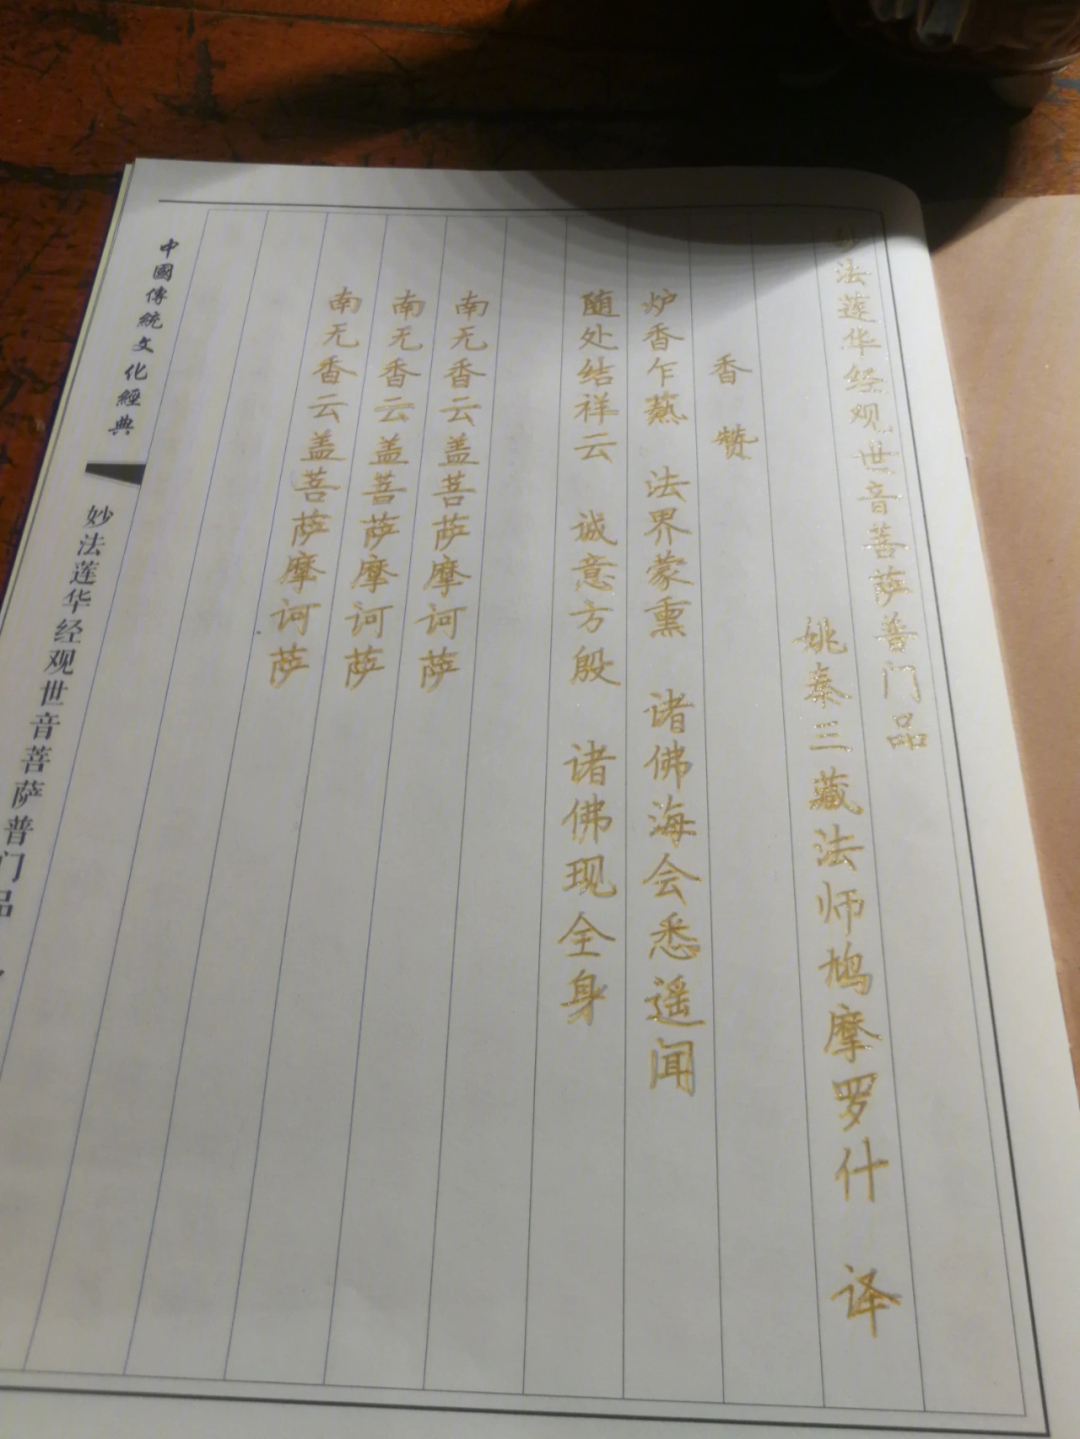 妙法莲华经观世音菩萨普门品
姚秦三藏法师鸠摩罗什 译
香 赞
炉香乍爇 法界蒙熏 诸佛海会悉遥闻
随处结祥云 诚意方殷 诸佛现全身
南无香云盖菩萨摩诃萨
南无香云盖菩萨摩诃萨
南无香云盖菩萨摩诃萨
中國傳統文化經典
妙法莲华经观世音菩萨普门品